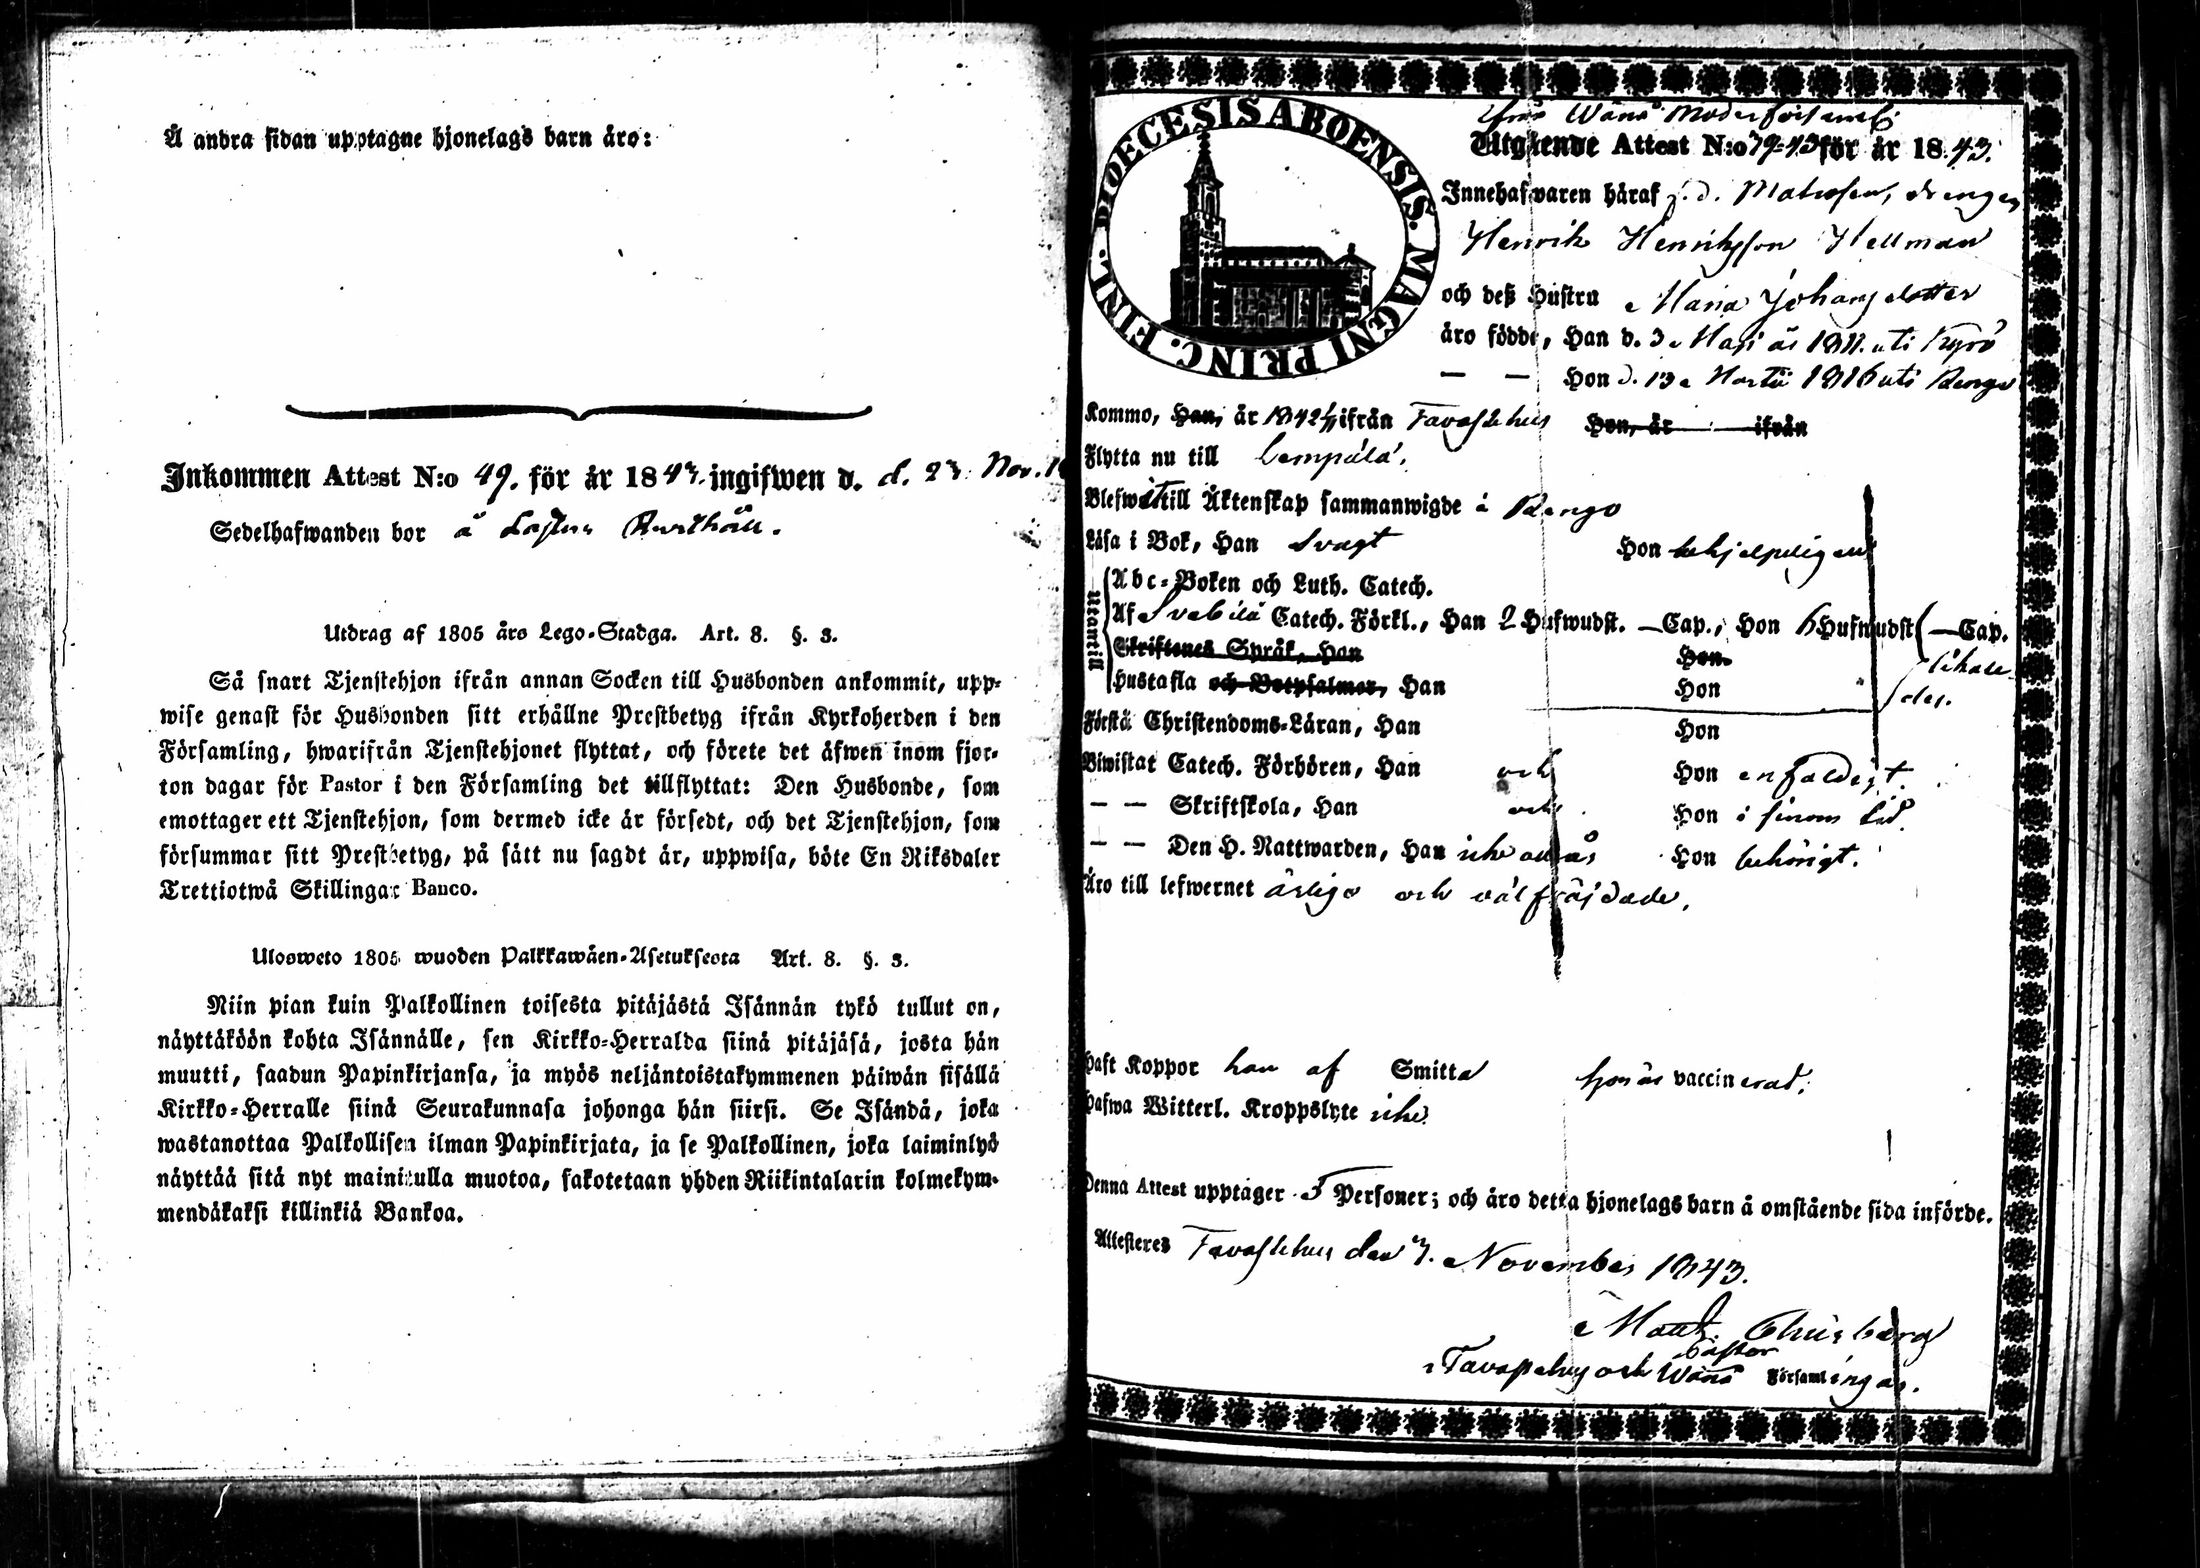 Å andra sidan upptagne hjonelags barn äro:
Inkommen Attest N:o 49. för år 1843. ingifwen d. d. 23 Nov.
Sedelhafwanden bor å
Utdrag af 1805 års Lego-Stadga. Art. 8. §. 3.
Så snart Tjenstehjon ifrån annan Socken till Husbonden ankommit, upp-
wise genast för Husbonden sitt erhållne Prestbetyg ifrån Kyrkoherden i den
Församling, hwarifrån Tjenstehjonet flyttat, och förete det äfwen inom fjor-
ton dagar för Pastor i den Församling det tillflyttat: Den Husbonde, som
emottager ett Tjenstehjon, som dermed icke är försedt, och det Tjenstehjon, som
försummar sitt Prestbetyg, på sätt nu sagdt är, uppwisa, böte En Riksdaler
Trettiotwå Skillingar Banco.
Ulosweto 1805 wuoden Palkkawäen-Asetuksesta Art. 8. §. 3.
Niin pian kuin Palkollinen toisesta pitäjästä Isännän tykö tullut on,
näyttäköön kohta Isännälle, sen Kirkko-Herralda siinä pitäjäsä, josta hän
muutti, saadun Papinkirjansa, ja myös neljäntoistakymmenen päiwän sisällä
Kirkko-Herralle siinä Seurakunnasa johonga hän siirsi. Se Isändä, joka
wastanottaa Palkollisen ilman Papinkirjata, ja se Palkollinen, joka laiminlyö
näyttää sitä nyt mainitulla muotoa, sakotetaan yhden Riikintalarin kolmekym-
mendäkaksi killinkiä Bankoa.
DIOECESIS ABOENSIS. MAGNI PRINC. FINL.
från Wånå Moderförsaml.
Utgående Attest N:o 79-43 för år 1843.
Innehafwaren häraf f.d. Matrosen, drengen
Henrik Henriksson Hellman
och deß Hustru Maria Johansdotter
äro födde, Han d. 3 Maji år 1811. uti Kyrö
— — Hon d. 13 Martii 1816 uti Rengo
Kommo, Han, år 1842 ifrån Tavastehus Hon, år — ifrån
Flytta nu till Lempälä.
Blefwit till Äktenskap sammanwigde i Rengo
Läsa i Bok, Han Svagt Hon behjelpeligen
Utantill
Abc-Boken och Luth. Catech.
Af Svebilii Catech. Förkl., Han 2 Hufwudst. — Cap., Hon 6 Hufwudst. — Cap.
Skriftenes Språk, Han Hon
Hustafla och Botpsalmer, Han Hon
Förstå Christendoms-Läran, Han Hon
Biwistat Catech. Förhören, Han och Hon enfaldigt.
— — Skriftskola, Han och Hon i sinom tid.
— — Den H. Nattwarden, Han Hon behörigt.
Äro till lefwernet ärliga och välfräjdade.
Haft Koppor han af Smitta hon är vaccinerad.
Hafwa Witterl. Kroppslyte icke.
Denna Attest upptager 5 Personer; och äro detta hjonelags barn å omstående sida införde.
Attesteres Tavastehus den 7. November 1843.
Pastor
Tavastehus och Wånå Församlingar.